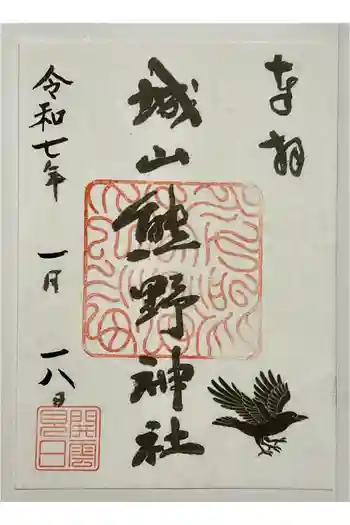 奉拝
城山熊野神社
令和七年 一月 一八日